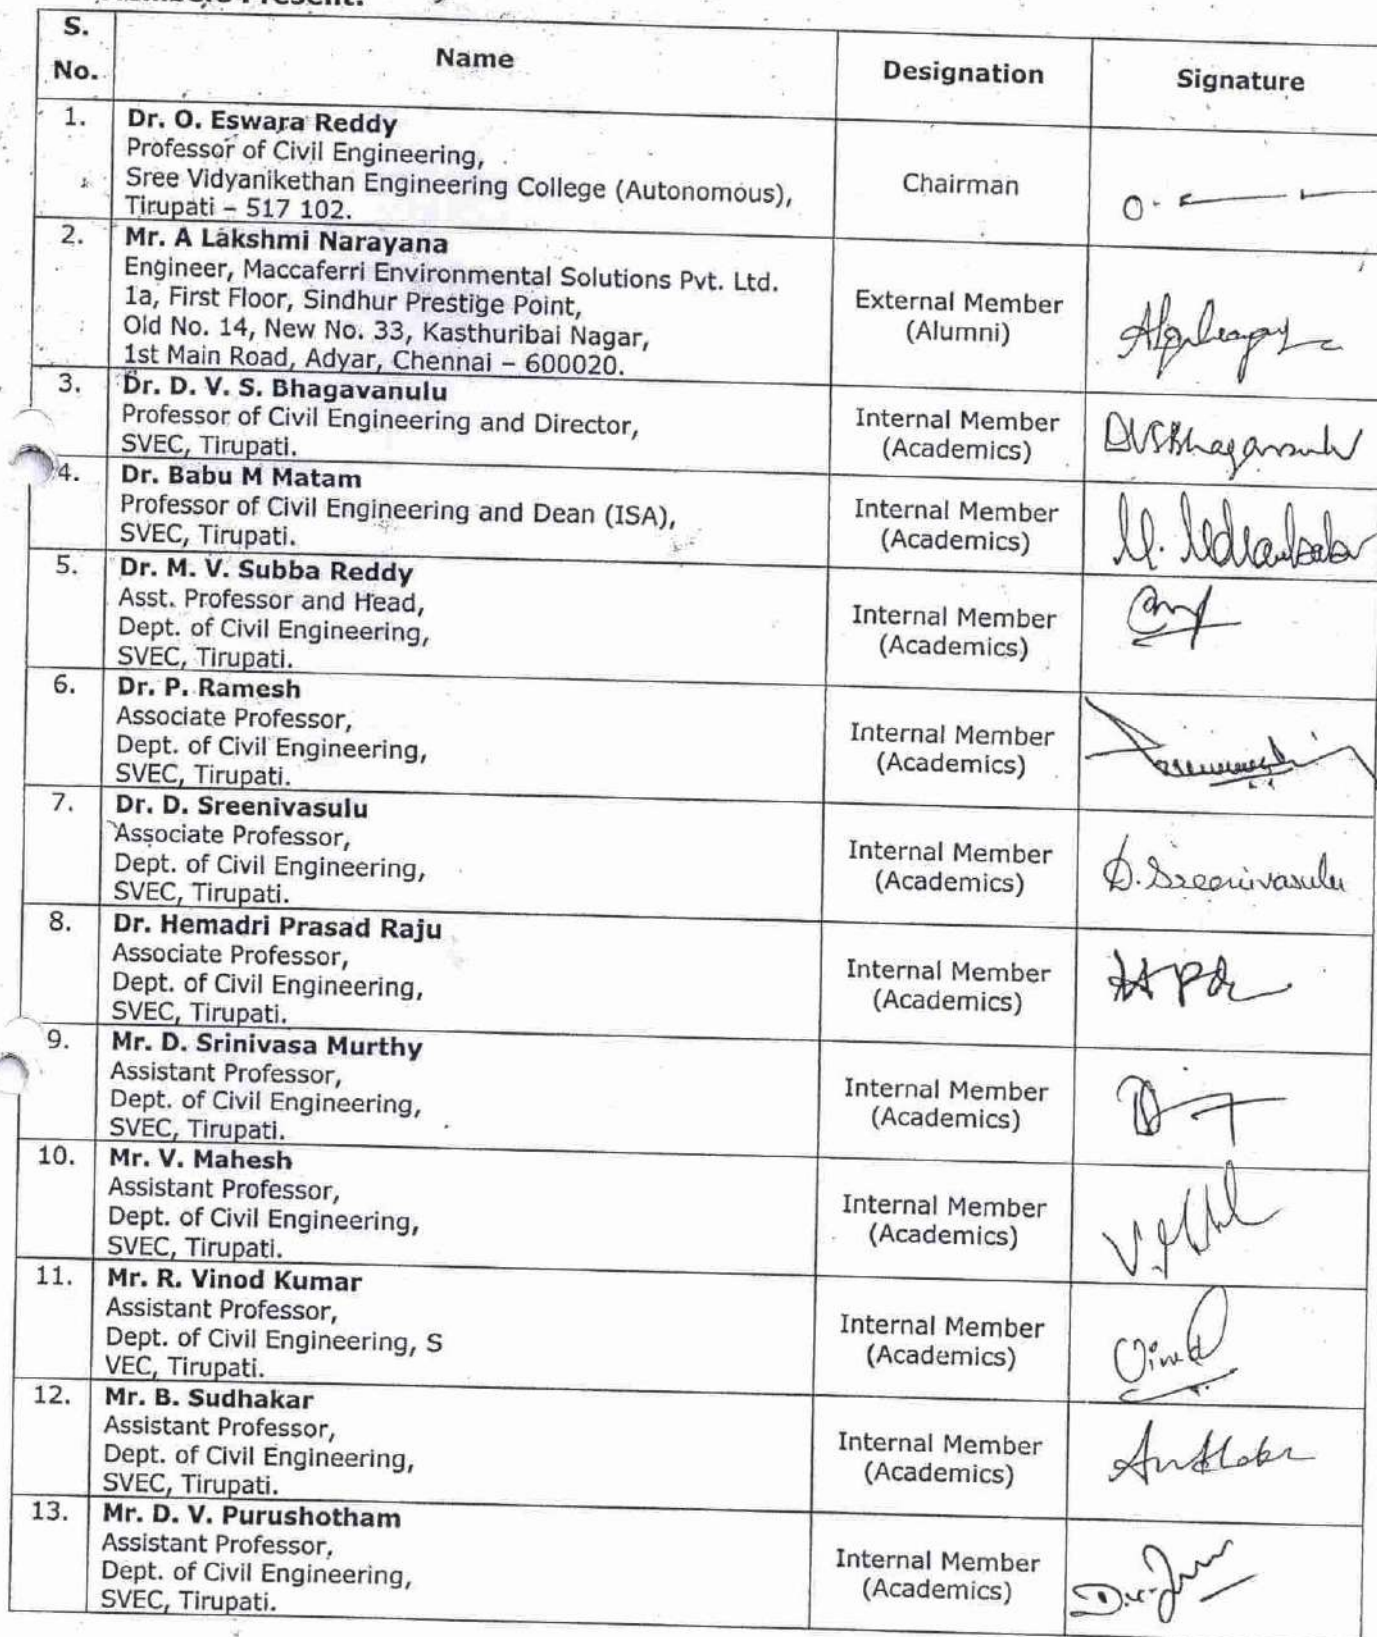 S.
No.
Name
Designation
Signature
1.
Dr. O. Eswara Reddy
Professor of Civil Engineering,
Sree Vidyanikethan Engineering College (Autonomous),
Tirupati – 517 102.
Chairman
2.
Mr. A Lakshmi Narayana
Engineer, Maccaferri Environmental Solutions Pvt. Ltd.
1a, First Floor, Sindhur Prestige Point,
Old No. 14, New No. 33, Kasthuribai Nagar,
1st Main Road, Adyar, Chennai – 600020.
External Member
(Alumni)
3.
Dr. D. V. S. Bhagavanulu
Professor of Civil Engineering and Director,
SVEC, Tirupati.
Internal Member
(Academics)
4.
Dr. Babu M Matam
Professor of Civil Engineering and Dean (ISA),
SVEC, Tirupati.
Internal Member
(Academics)
5.
Dr. M. V. Subba Reddy
Asst. Professor and Head,
Dept. of Civil Engineering,
SVEC, Tirupati.
Internal Member
(Academics)
6.
Dr. P. Ramesh
Associate Professor,
Dept. of Civil Engineering,
SVEC, Tirupati.
Internal Member
(Academics)
7.
Dr. D. Sreenivasulu
Associate Professor,
Dept. of Civil Engineering,
SVEC, Tirupati.
Internal Member
(Academics)
D. Sreenivasulu
8.
Dr. Hemadri Prasad Raju
Associate Professor,
Dept. of Civil Engineering,
SVEC, Tirupati.
Internal Member
(Academics)
9.
Mr. D. Srinivasa Murthy
Assistant Professor,
Dept. of Civil Engineering,
SVEC, Tirupati.
Internal Member
(Academics)
10.
Mr. V. Mahesh
Assistant Professor,
Dept. of Civil Engineering,
SVEC, Tirupati.
Internal Member
(Academics)
11.
Mr. R. Vinod Kumar
Assistant Professor,
Dept. of Civil Engineering, S
VEC, Tirupati.
Internal Member
(Academics)
12.
Mr. B. Sudhakar
Assistant Professor,
Dept. of Civil Engineering,
SVEC, Tirupati.
Internal Member
(Academics)
13.
Mr. D. V. Purushotham
Assistant Professor,
Dept. of Civil Engineering,
SVEC, Tirupati.
Internal Member
(Academics)